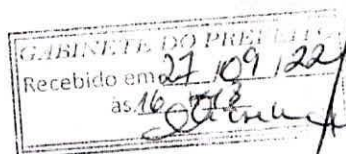 GABINETE DO PREFEITO
Recebido em 27 / 09 / 22
às 16